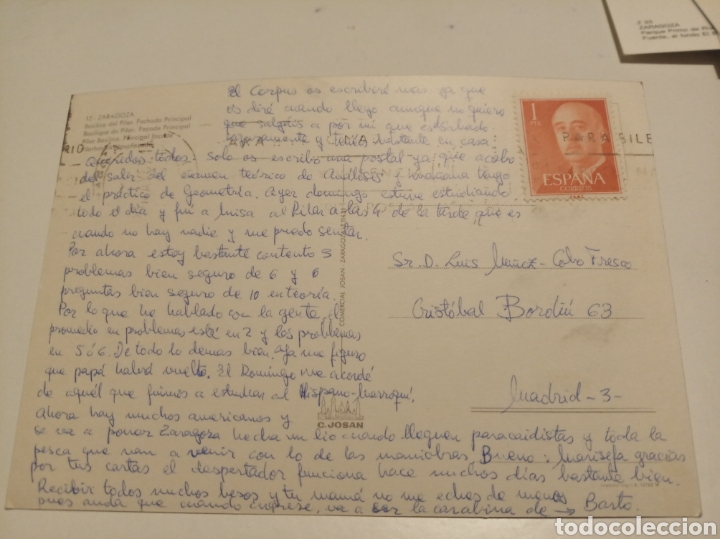 El Corpus os escribiré más ya que
os diré cuando llego aunque no quiero
que salgáis a por mi que estorbado
y bastante en casa.
17 - ZARAGOZA
Basílica del Pilar. Fachada Principal
Basilique du Pilar. Façade Principal
Pilar Basilica. Principal Façade
Queridos todos: solo os escribo una postal ya que acabo
de salir del examen teórico de Análisis y mañana tengo
el práctico de Geometría. Ayer domingo estuve estudiando
todo el día y fui a misa al Pilar a las 4 de la tarde, que es
cuando no hay nadie y me puedo sentar.
Por ahora estoy bastante contento 3
problemas bien seguro de 6 y 6
preguntas bien seguro de 10 en teoría.
Por lo que he hablado con la gente, el
promedio en problemas está en 2 y los problemas
en 5 ó 6. De todo lo demás bien. Ya me figuro
que papá habrá vuelto. El Domingo me acordé
de aquél que fuimos a estudiar al Hispano-Marroquí.
Ahora hay muchos americanos y
se va a poner Zaragoza hecha un lío cuando lleguen paracaidistas y toda la
pesca que van a venir con lo de las maniobras. Bueno: Marisefa gracias
por tus cartas el despertador funciona hace muchos días bastante bien.
Recibir todos muchos besos y tu mamá no me eches de menos
que cuando ingrese, va a ser la carabina de → Barto.
COMERCIAL JOSAN - ZARAGOZA
C. JOSAN
1
PTA
ESPAÑA
CORREOS
PARABILE
Sr. D. Luis - Cobo Fresco
Cristóbal Bordiú 63
Madrid - 3 -
ZARAGOZA